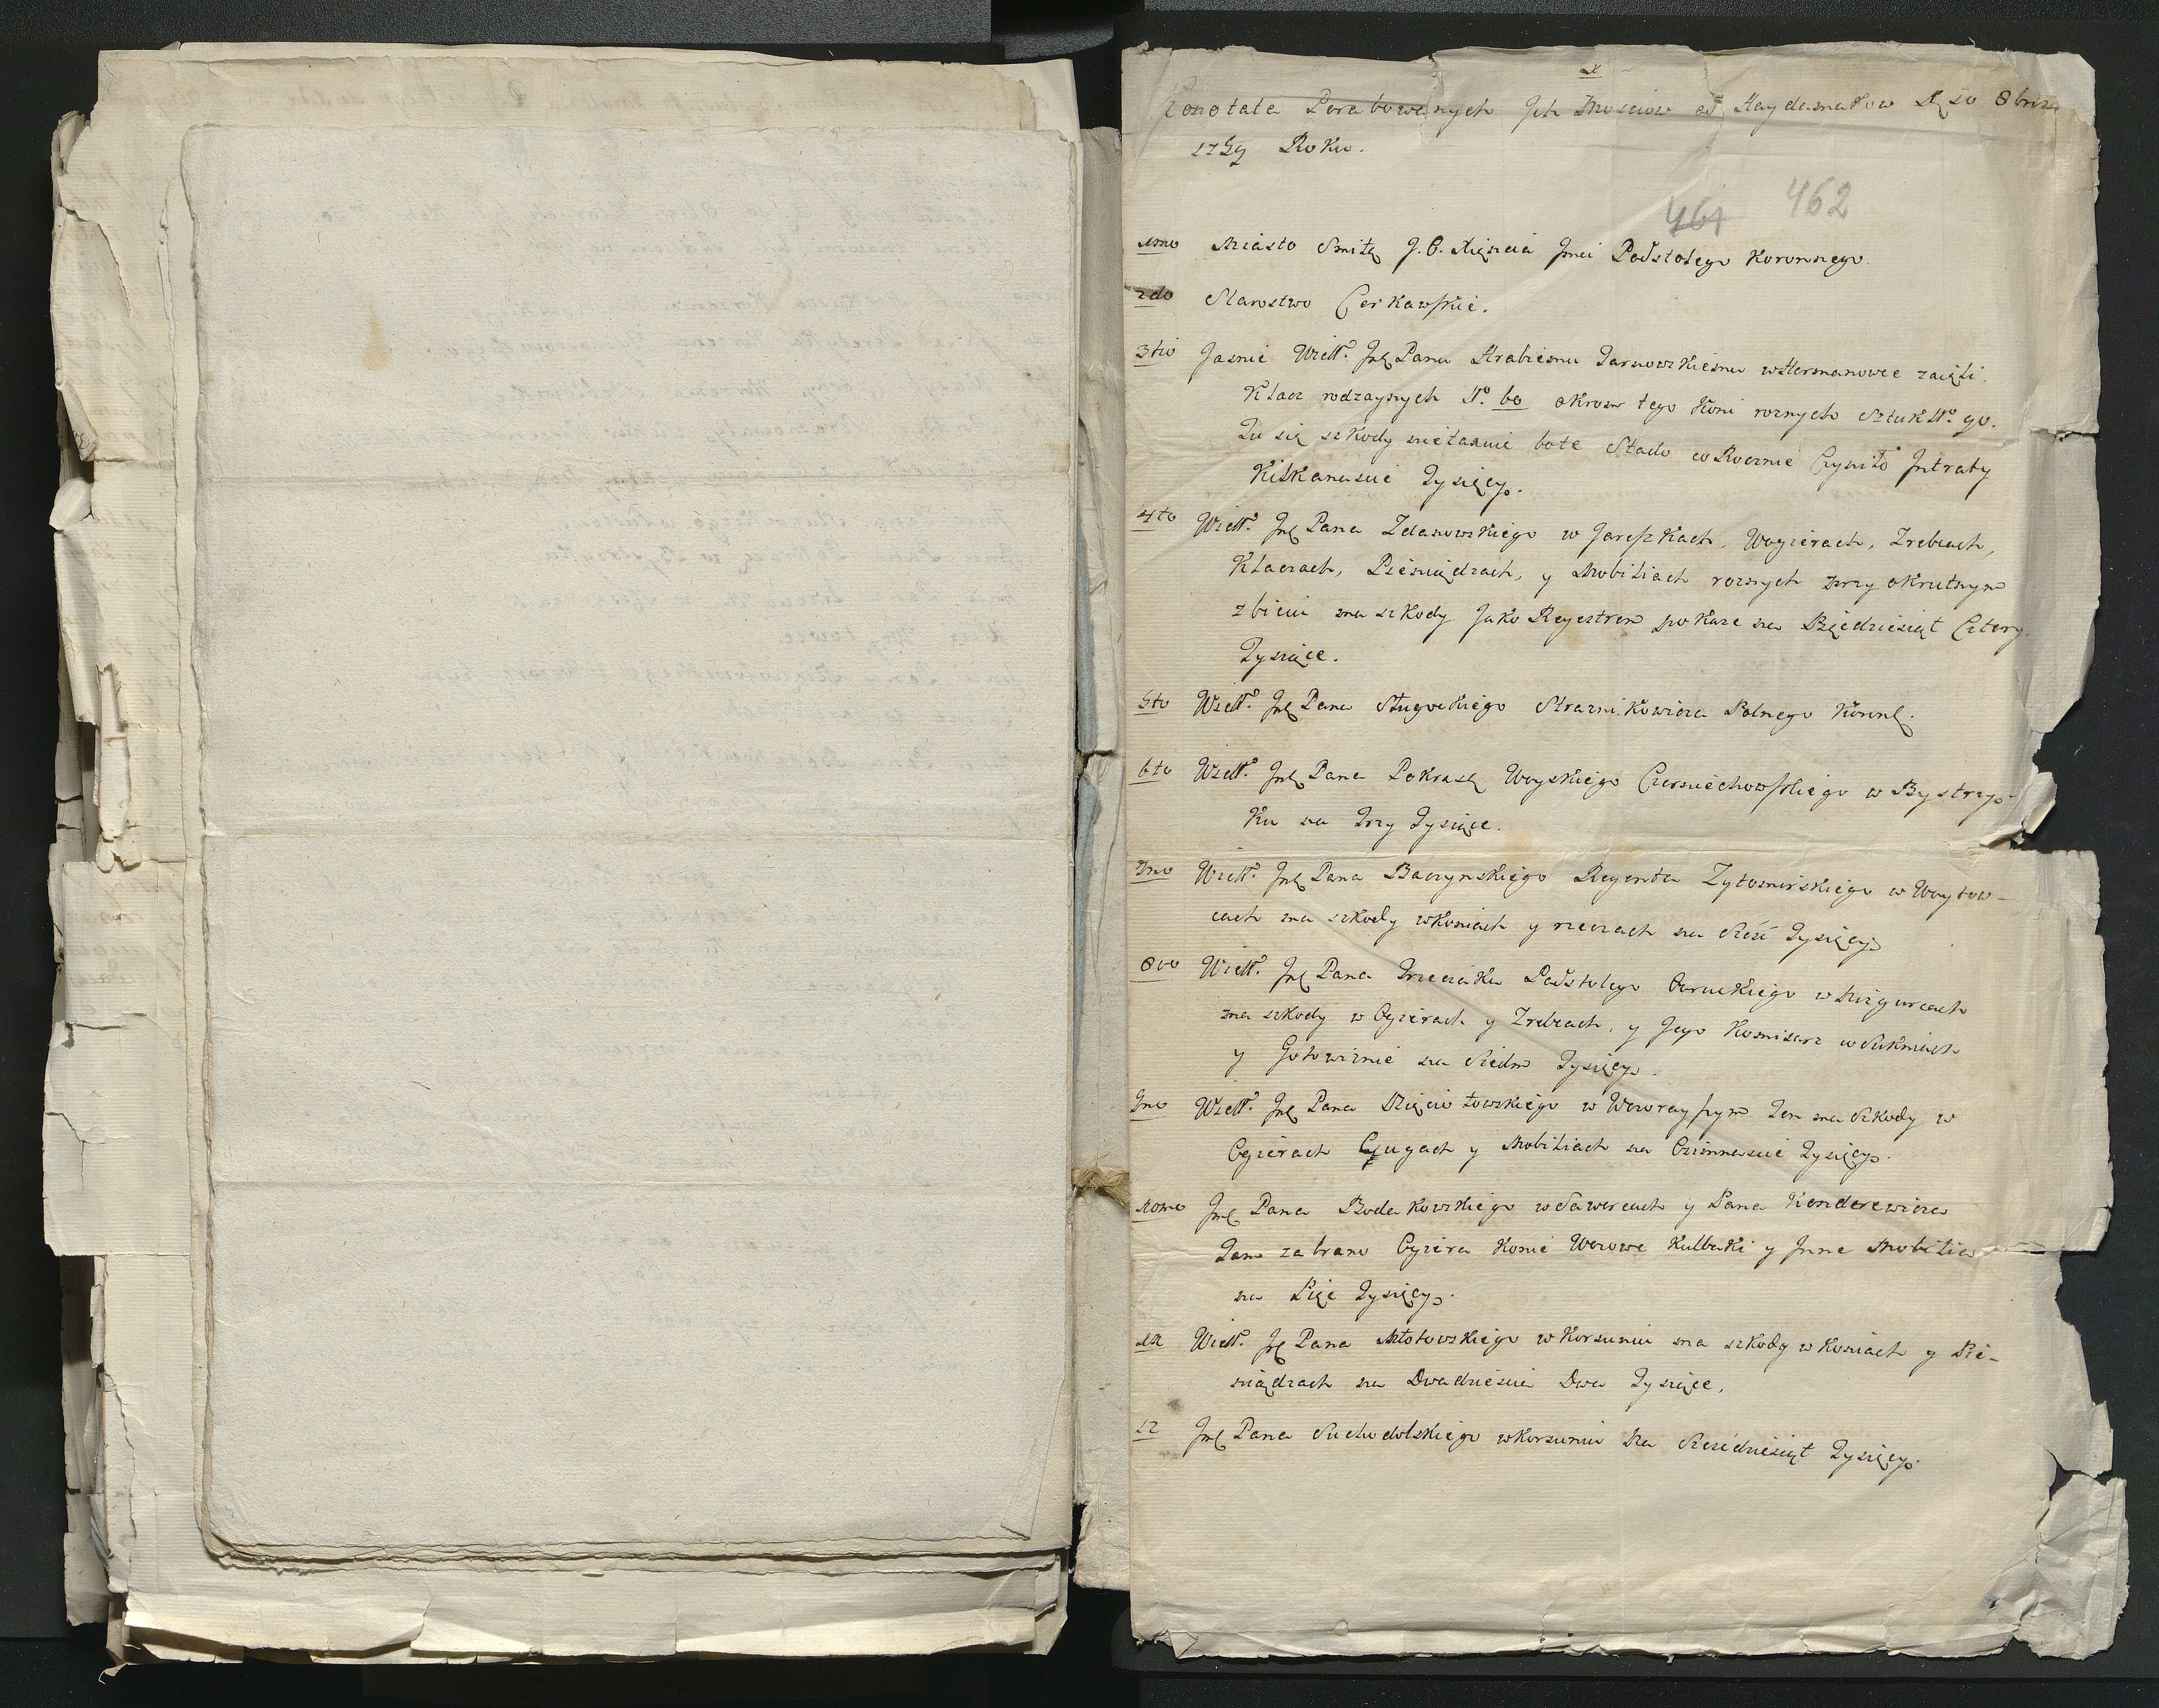 X
Konotata Porabowanych Ich Mosciow od Haydamakow D 20 8bris
1759 Roku.
461 462
1mo Miasto Smiłę J. O. Xięzcia Jmci Podstolego Koronnego.
2do Starostwo Czerkawskie.
3tio Jasnie Wiel. Jmę Panu Hrabiemu Tarnowskiemu w Hermanowce zaieli
Klacz rodzaynych No. 60 okrom tego Koni roznych Sztuk No. 90.
Tu się szkody nietaxuie bo te Stado co Rocznie Czyniło Jntraty
Kilkanascie Tysięcy.
4to Wiel. Jmę Pana Zdanowskiego w Jareszkach, Wogierach, Zrebcach,
Klaczach, Pieniądzach, y Mobiliach roznych przy okrutnym
zbiciu ma szkody Jako Reyestrem pokaze na Pięcdziesiąt Cztery
Tysiące.
5to Wiel. Jmę Pana Sługockiego Straznikowicza Polnego Koronę.
6to Wiel. Jmę Pana Pokrasę Woyskiego Czerniechowskiego w Bystrzy-
ku na Trzy Tysiące.
7mo Wiel. Jmę Pana Baczynskiego Regenta Zytomirskiego w Woytow-
cach ma szkody w Koniach y rzeczach na Szesc Tysięcy
8vo Wiel. Jmę Pana Trzeciaka Podstolego Owruckiego w Mizgurcach
ma szkody w Ogierach y Zrebcach, y Jego Komisarz w Sukniach
y Gotowiznie na Siedm Tysięcy.
9no Wiel. Jmę Pana Mięciotowskiego w Ten ma Szkody w
Ogierach Cugach y Mobiliach na Osimnascie Tysięcy.
10mo Jmę Pana Bodakowskiego w Sawercach y Pana Kenderewicza
Tam zabrano Ogiera Konie Wozowe Kulbaki y Jnne Mobilia
na Pięc Tysięcy.
11 Wiel. Ję Pana Młotowskiego w Korsuniu ma szkody w Koniach y Pie-
niądzach na Dwadziescia Dwa Tysiące,
12 Jmę Pana Suchodolskiego w Korsuniu na Szescdziesiąt Tysięcy.